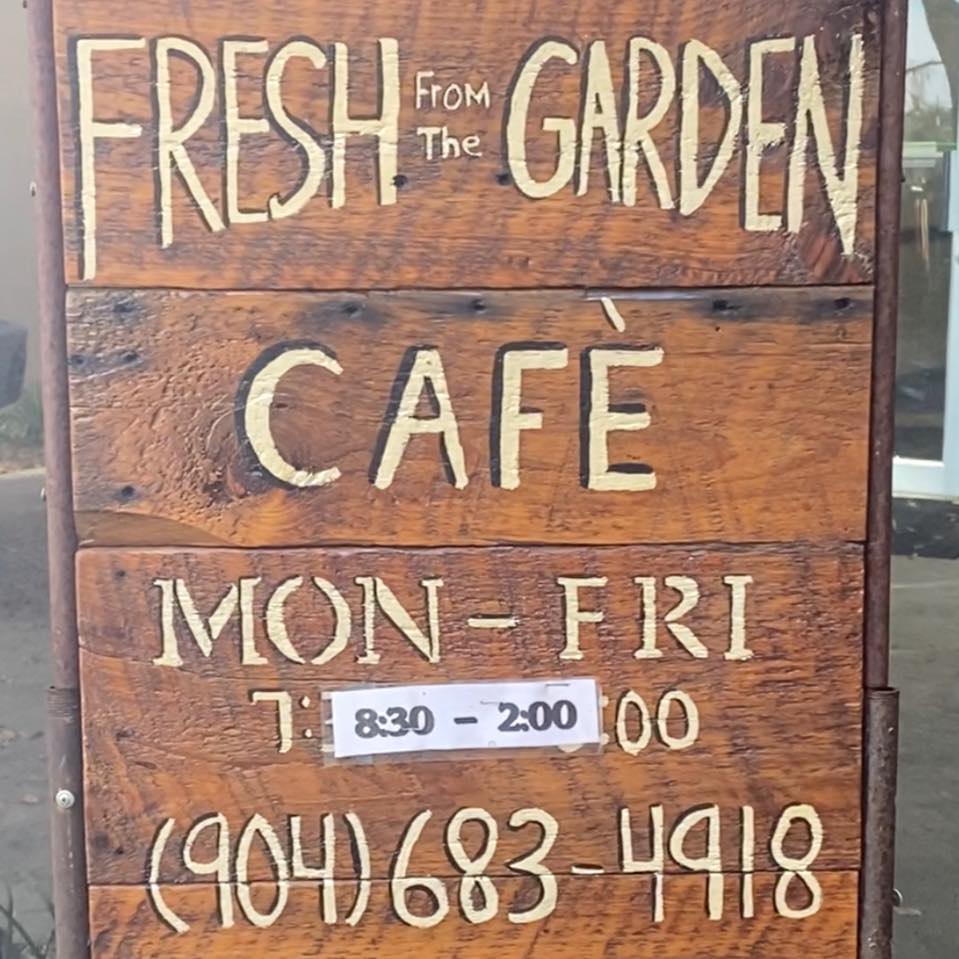 FRESH From The GARDEN
CAFÈ
MON - FRI
7: 8:30 - 2:00 :00
(904) 683-4918